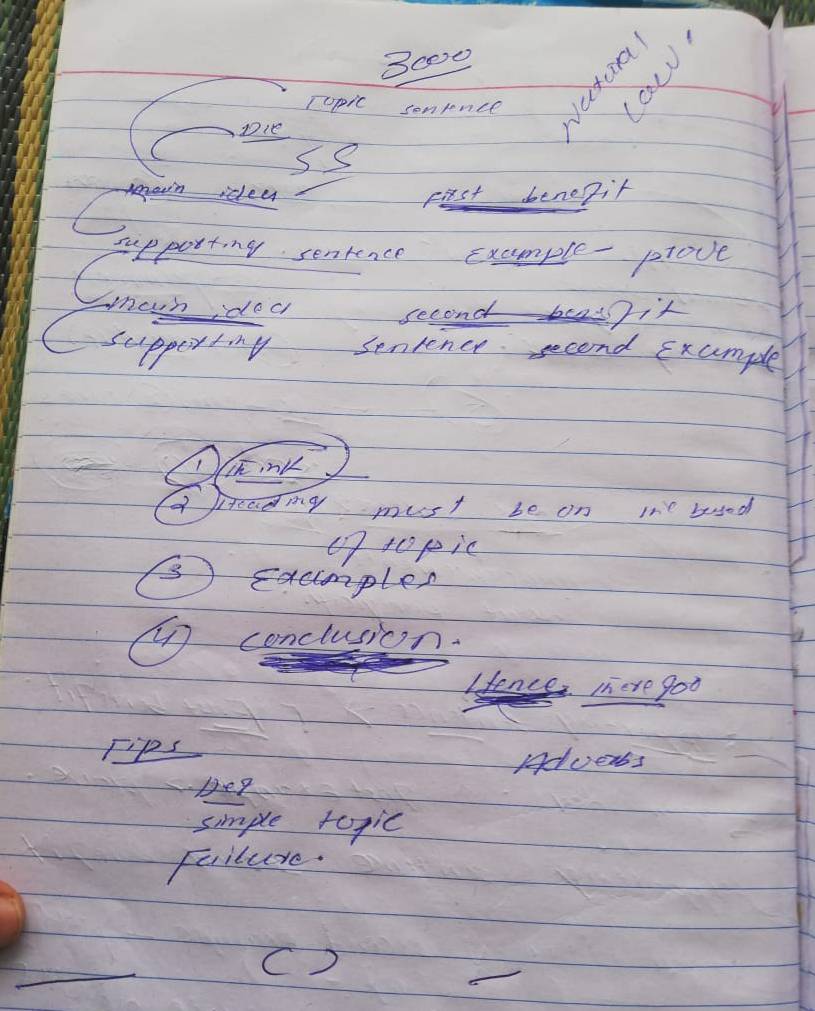 3000
Natural
Law.
Topic sentence
Die
SS
main idea First benefit
supporting sentence Example - prove
main idea second benefit
supporting sentence. second Example
1 think
2 Heading must be on the based
of topic
3 Examples
4 conclusion.
Hence,
Tips Adverbs
simple topic
Failure.
( )